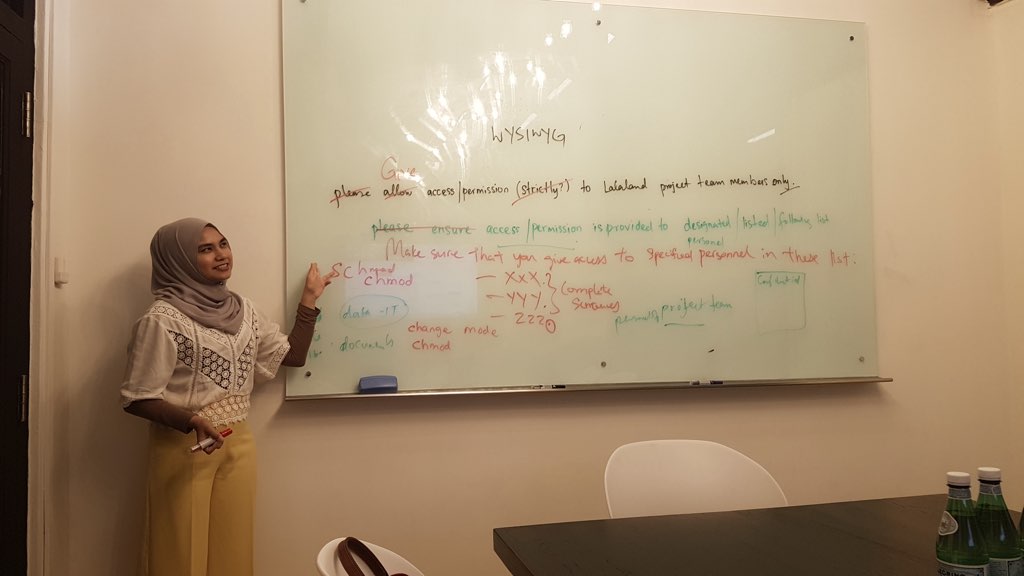 WYSIWYG
Give
please allow access/permission (strictly?) to Lalaland project team members only.
please ensure access/permission is provided to designated/listed/following list
personnel
Make sure that you give access to specified personnel in these list:
Schmod
chmod
- XXX.
- YYY.
- ZZZ.
complete
sentences
data - IT
documents
change mode
chmod
project team
Confidential